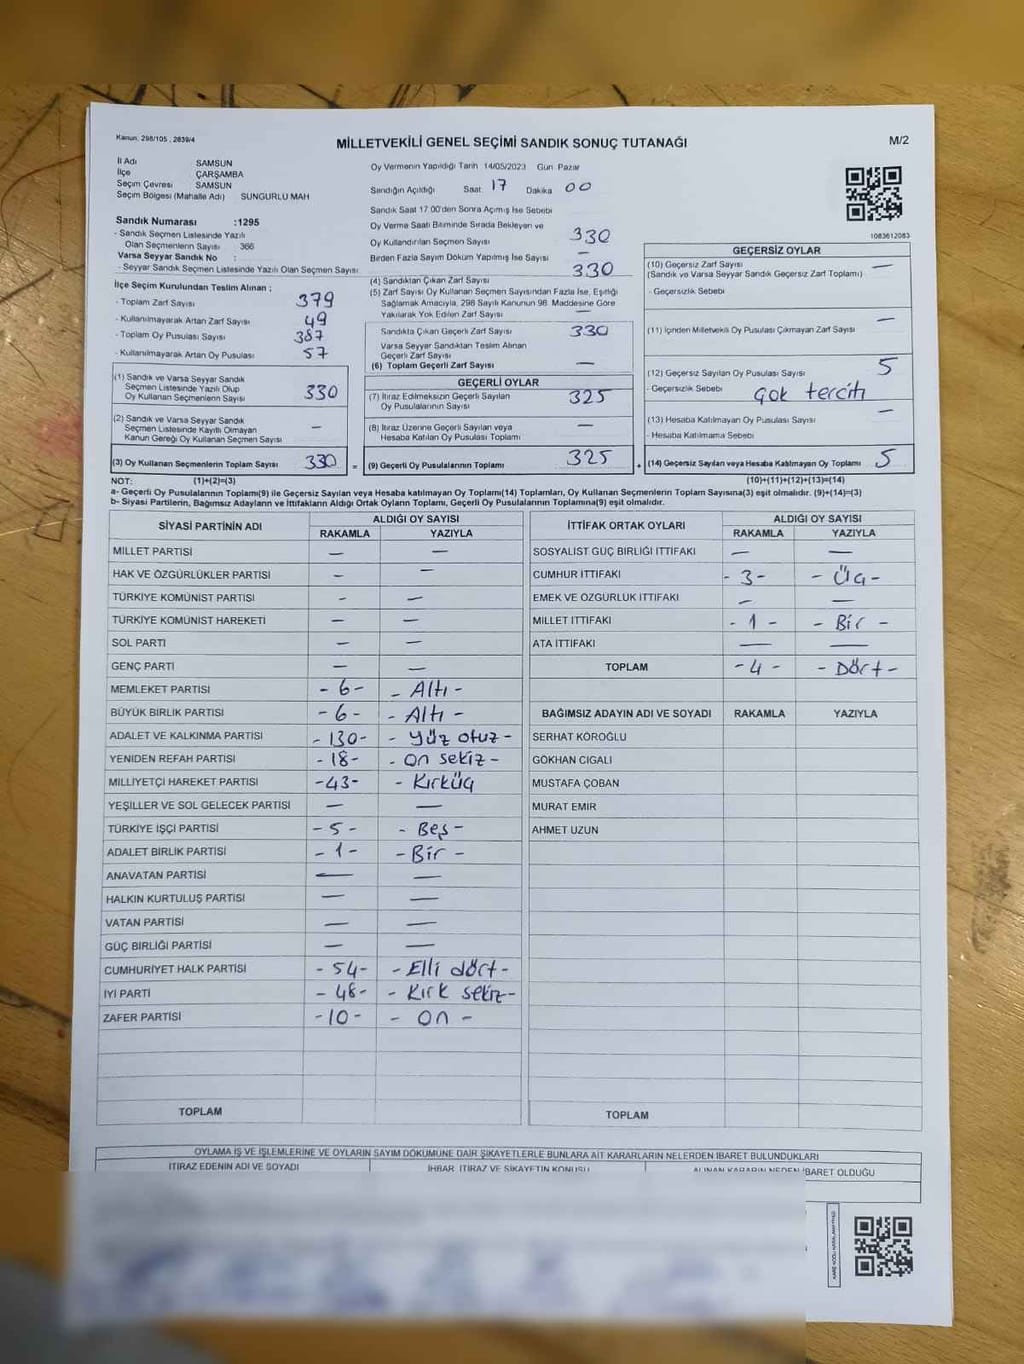 Kanun: 298/105 , 2839/4
MİLLETVEKİLİ GENEL SEÇİMİ SANDIK SONUÇ TUTANAĞI
M/2
İl Adı SAMSUN
İlçe ÇARŞAMBA
Seçim Çevresi SAMSUN
Seçim Bölgesi (Mahalle Adı) SUNGURLU MAH
Sandık Numarası :1295
- Sandık Seçmen Listesinde Yazılı
Olan Seçmenlerin Sayısı 366
Varsa Seyyar Sandık No :
- Seyyar Sandık Seçmen Listesinde Yazılı Olan Seçmen Sayısı
İlçe Seçim Kurulundan Teslim Alınan ;
- Toplam Zarf Sayısı 379
- Kullanılmayarak Artan Zarf Sayısı 49
- Toplam Oy Pusulası Sayısı 387
- Kullanılmayarak Artan Oy Pusulası 57
(1) Sandık ve Varsa Seyyar Sandık
Seçmen Listesinde Yazılı Olup
Oy Kullanan Seçmen Sayısı 330
(2) Sandık ve Varsa Seyyar Sandık
Seçmen Listesinde Kayıtlı Olmayan
Kanun Gereği Oy Kullanan Seçmen Sayısı —
(3) Oy Kullanan Seçmenlerin Toplam Sayısı 330 =
Oy Vermenin Yapıldığı Tarih 14/05/2023 Gün Pazar
Sandığın Açıldığı Saat 17 Dakika 00
Sandık Saat 17:00'den Sonra Açılmış İse Sebebi
Oy Verme Saati Bitiminde Sırada Bekleyen ve
Oy Kullandırılan Seçmen Sayısı 330
Birden Fazla Sayım Döküm Yapılmış İse Sayısı —
(4) Sandıktan Çıkan Zarf Sayısı 330
(5) Zarf Sayısı Oy Kullanan Seçmen Sayısından Fazla İse, Eşitliği
Sağlamak Amacıyla, 298 Sayılı Kanunun 98. Maddesine Göre
Yakılarak Yok Edilen Zarf Sayısı —
Sandıkta Çıkan Geçerli Zarf Sayısı 330
Varsa Seyyar Sandıktan Teslim Alınan
Geçerli Zarf Sayısı
(6) Toplam Geçerli Zarf Sayısı —
GEÇERLİ OYLAR
(7) İtiraz Edilmeksizin Geçerli Sayılan
Oy Pusulalarının Sayısı 325
(8) İtiraz Üzerine Geçerli Sayılan veya
Hesaba Katılan Oy Pusulası Toplamı —
(9) Geçerli Oy Pusulalarının Toplamı 325 +
1083612083
GEÇERSİZ OYLAR
(10) Geçersiz Zarf Sayısı —
(Sandık ve Varsa Seyyar Sandık Geçersiz Zarf Toplamı)
- Geçersizlik Sebebi
(11) İçinden Milletvekili Oy Pusulası Çıkmayan Zarf Sayısı —
(12) Geçersiz Sayılan Oy Pusulası Sayısı 5
- Geçersizlik Sebebi Çok tercih
(13) Hesaba Katılmayan Oy Pusulası Sayısı —
- Hesaba Katılmama Sebebi
(14) Geçersiz Sayılan veya Hesaba Katılmayan Oy Toplamı 5
NOT: (1)+(2)=(3) (10)+(11)+(12)+(13)=(14)
a- Geçerli Oy Pusulalarının Toplamı(9) ile Geçersiz Sayılan veya Hesaba katılmayan Oy Toplamı(14) Toplamları, Oy Kullanan Seçmenlerin Toplam Sayısına(3) eşit olmalıdır. (9)+(14)=(3)
b- Siyasi Partilerin, Bağımsız Adayların ve İttifakların Aldığı Ortak Oyların Toplamı, Geçerli Oy Pusulalarının Toplamına(9) eşit olmalıdır.
SİYASİ PARTİNİN ADI ALDIĞI OY SAYISI
RAKAMLA YAZIYLA
MİLLET PARTİSİ — —
HAK VE ÖZGÜRLÜKLER PARTİSİ — —
TÜRKİYE KOMÜNİST PARTİSİ — —
TÜRKİYE KOMÜNİST HAREKETİ — —
SOL PARTİ — —
GENÇ PARTİ — —
MEMLEKET PARTİSİ - 6 - - Altı -
BÜYÜK BİRLİK PARTİSİ - 6 - - Altı -
ADALET VE KALKINMA PARTİSİ - 130 - - Yüz otuz -
YENİDEN REFAH PARTİSİ - 18 - - On sekiz -
MİLLİYETÇİ HAREKET PARTİSİ - 43 - - Kırküç
YEŞİLLER VE SOL GELECEK PARTİSİ — —
TÜRKİYE İŞÇİ PARTİSİ - 5 - - Beş -
ADALET BİRLİK PARTİSİ - 1 - - Bir -
ANAVATAN PARTİSİ — —
HALKIN KURTULUŞ PARTİSİ — —
VATAN PARTİSİ — —
GÜÇ BİRLİĞİ PARTİSİ — —
CUMHURİYET HALK PARTİSİ - 54 - - Elli dört -
İYİ PARTİ - 48 - - Kırk sekiz -
ZAFER PARTİSİ - 10 - - On -
TOPLAM
İTTİFAK ORTAK OYLARI ALDIĞI OY SAYISI
RAKAMLA YAZIYLA
SOSYALİST GÜÇ BİRLİĞİ İTTİFAKI — —
CUMHUR İTTİFAKI - 3 - - Üç -
EMEK VE ÖZGÜRLÜK İTTİFAKI — —
MİLLET İTTİFAKI - 1 - - Bir -
ATA İTTİFAKI — —
TOPLAM - 4 - - Dört -
BAĞIMSIZ ADAYIN ADI VE SOYADI RAKAMLA YAZIYLA
SERHAT KÖROĞLU
GÖKHAN CIGALI
MUSTAFA ÇOBAN
MURAT EMİR
AHMET UZUN
TOPLAM
OYLAMA İŞ VE İŞLEMLERİNE VE OYLARIN SAYIM DÖKÜMÜNE DAİR ŞİKAYETLERLE BUNLARA AİT KARARLARIN NELERDEN İBARET BULUNDUKLARI
İTİRAZ EDENİN ADI VE SOYADI İHBAR, İTİRAZ VE ŞİKAYETİN KONUSU ALINAN KARARIN NEDEN İBARET OLDUĞU